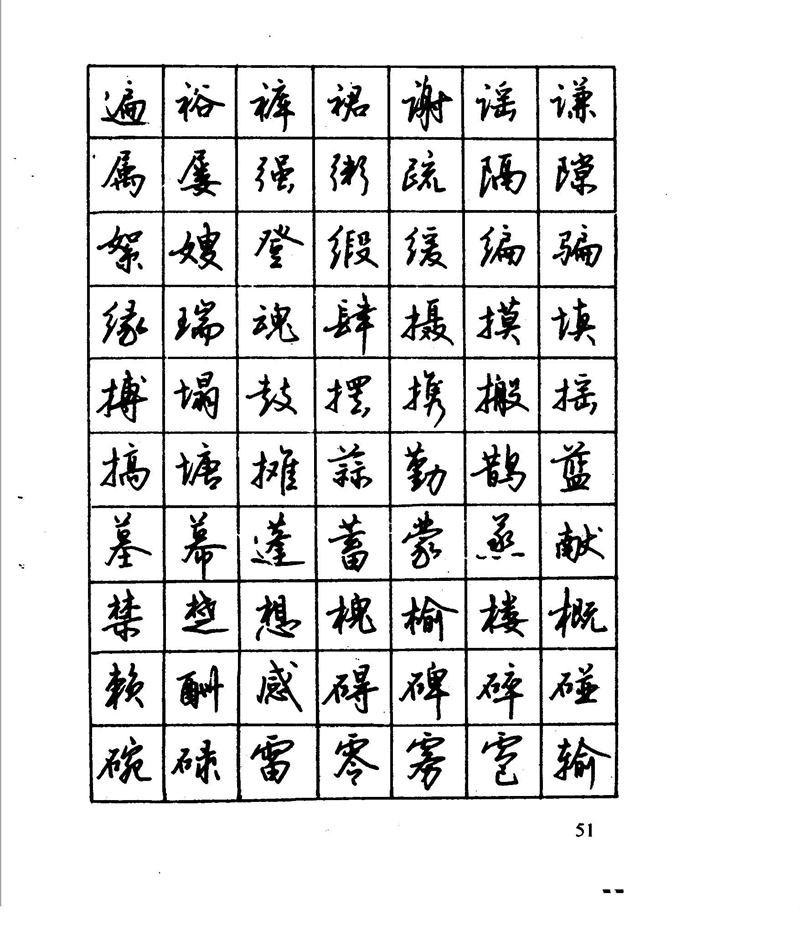 遍 裕 裤 裙 谢 谣 谦
属 屡 强 粥 疏 隔 隙
絮 嫂 登 缎 缓 编 骗
缘 瑞 魂 肆 摄 摸 填
搏 塌 鼓 摆 携 搬 摇
搞 塘 摊 蒜 勤 鹊 蓝
墓 幕 蓬 蓄 蒙 蒸 献
禁 楚 想 槐 榆 楼 概
赖 酬 感 碍 碑 碎 碰
碗 碌 雷 零 雾 雹 输
51